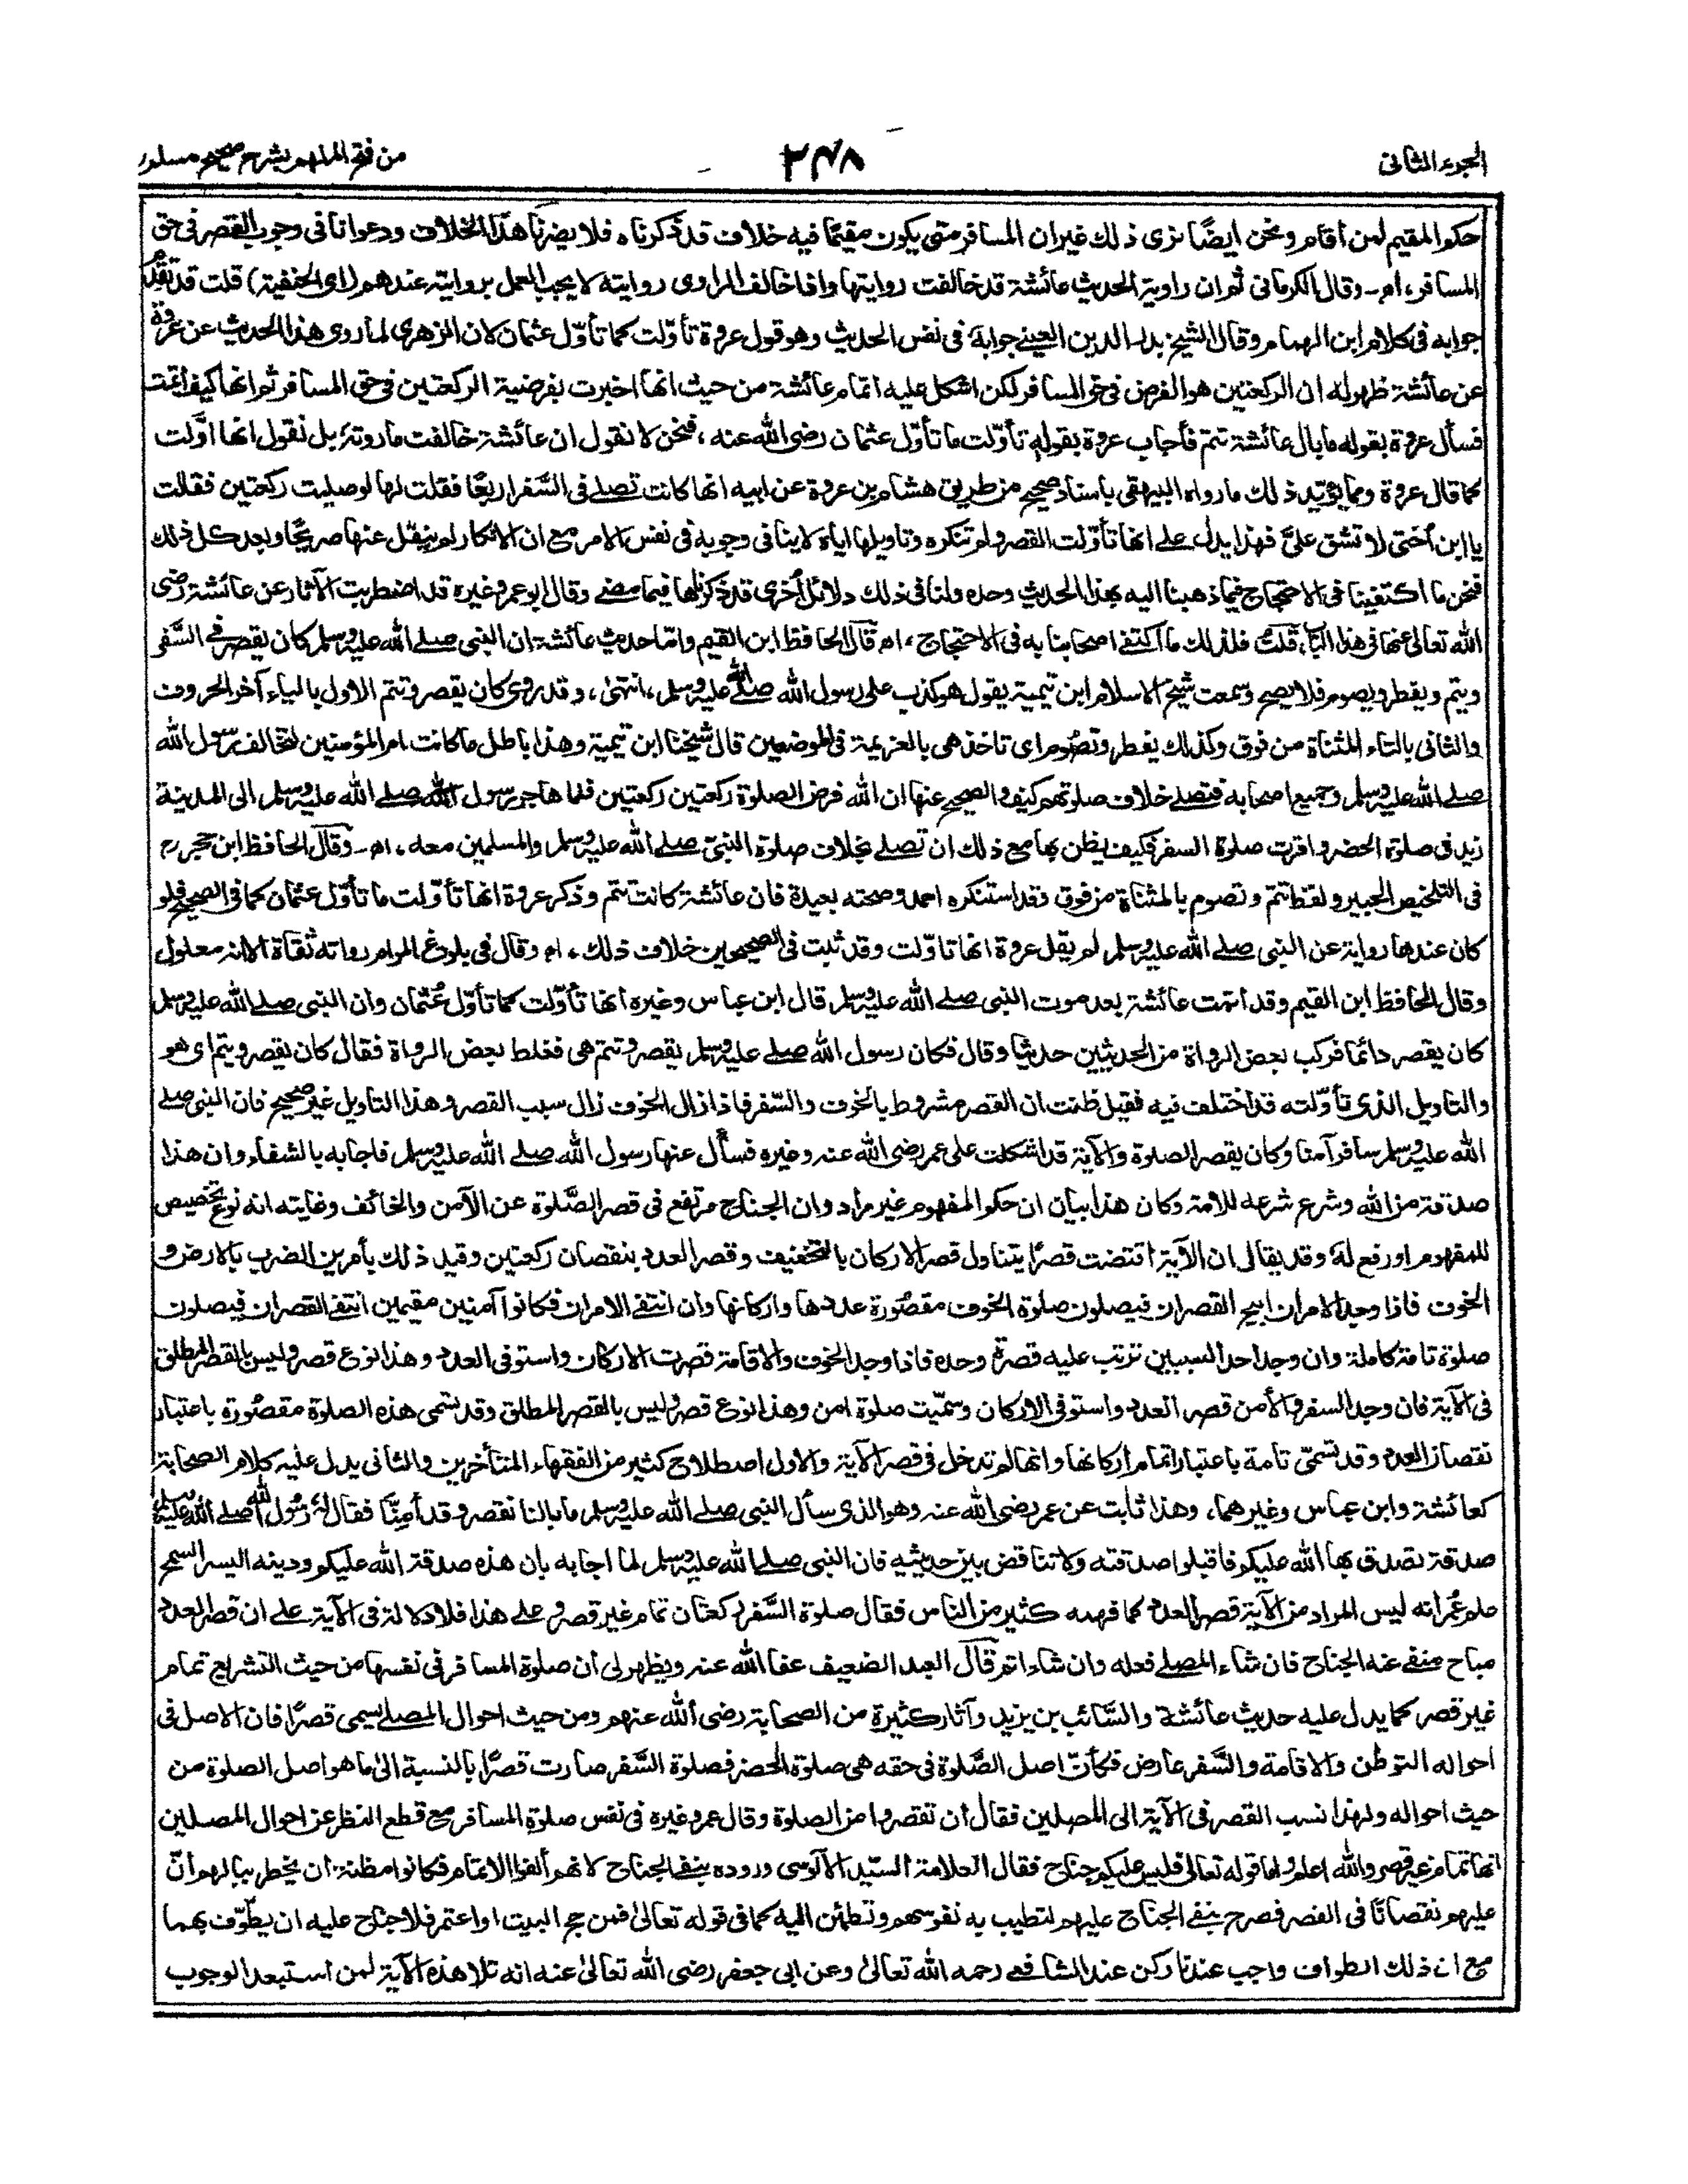 الجزء الثانى
٢٤٨
من فتح الملهم بشرح صحيح مسلم
حكم المقيم لمن أقام ونحن ايضًا نرى ذلك غير ان المسافر متى يكون مقيمًا فيه خلاف قد ذكرناه فلا يضرنا هذا الخلاف ودعوانا فى وجوب القصر فى حق
المسافر، اھ۔ وقال الكرمانى ثم ان راوية الحديث عائشة قد خالفت روايتها واذا خالف الراوى روايته لا يجب العمل بروايته عندهم (اى الحنفية) قلت قد تقدم
جوابه فى كلام ابن الهمام وقال الشيخ بدر الدين العينى جوابه فى نفس الحديث وهو قول عروة تأوّلت كما تأوّل عثمان لان الزهرى لما روى هذا الحديث عن عروة
عن عائشة ظهر له ان الركعتين هو الفرض فى حق المسافر لكن اشكل عليه اتمام عائشة من حيث انها اخبرت بفرضية الركعتين فى حق المسافر ثم انها كيف اتمت
فسأل عروة بقوله ما بال عائشة تتم فأجاب عروة بقوله تأوّلت ما تأوّل عثمان رضى الله عنه، فنحن لا نقول ان عائشة خالفت ما روته بل نقول انها اوّلت
كما قال عروة ومما يؤيد ذلك ما رواه البيهقى باسناد صحيح من طريق هشام بن عروة عن ابيه انها كانت تصلے فى السَّفر اربعًا فقلت لها لو صليت ركعتين فقلت
يا ابن اُختى لا تشق علىَّ فهذا يدل علے انها تأوّلت القصر ولم تنكره وتاويلها اياه لا ينافى وجوبه فى نفس الامر مع ان الانكار لم ينقل عنها صريحًا وبعد كل ذلك
فنحن ما اكتفينا فى الاحتجاج فيما ذهبنا اليه بهذا الحديث وحده ولنا فى ذلك دلائل اُخرى قد ذكرناها فيما مضے وقال ابو عمر وغيره قد اضطربت الآثار عن عائشة رضى
الله تعالى عنها فى هذا الباب، قلت فلذلك ما اكتفے اصحابنا به فى الاحتجاج، اھ قال الحافظ ابن القيم وامّا حديث عائشة ان النبى صلے الله عليه وسلم كان يقصر فى السَّفر
ويتم ويفطر ويصوم فلا يصح وسمعت شيخ الاسلام ابن تيمية يقول هو كذب على رسول الله صلے الله عليه وسلم، انتهٰى، وقد روى كان يقصر وتتم الاول بالياء آخر الحروف
والثانى بالتاء المثناة من فوق وكذلك يفطر وتصوم اى تاخذ هى بالعزيمة فى الموضعين قال شيخنا ابن تيمية وهذا باطل ما كانت ام المؤمنين لتخالف رسول الله
صلے الله عليه وسلم وجميع اصحابه فتصلے خلاف صلوتهم كيف والصحيح عنها ان الله فرض الصلوة ركعتين ركعتين فلما هاجر رسول الله صلے الله عليه وسلم الى المدينة
زيد فى صلوة الحضر واقرت صلوة السفر فكيف يظن بها مع ذلك ان تصلے بخلاف صلوة النبىّ صلے الله عليه وسلم والمسلمين معه، اھ۔ وقال الحافظ ابن حجر رح
فى التلخيص الحبير ولفظ تتم وتصوم بالمثناة من فوق وقد استنكره احمد وصحته بعيدة فان عائشة كانت تتم وذكر عروة انها تأوّلت ما تأوّل عثمان كما فى الصحيح فلو
كان عندها رواية عن النبى صلے الله عليه وسلم لم يقل عروة انها تاوّلت وقد ثبت فى الصحيحين خلاف ذلك، اھ وقال فى بلوغ المرام رواته ثقاة الا انه معلول
وقال الحافظ ابن القيم وقد اتمت عائشة بعد موت النبى صلے الله عليه وسلم قال ابن عباس وغيره انها تأوّلت كما تأوّل عُثمان وان النبى صلے الله عليه وسلم
كان يقصر دائما فركب بعض الرواة من الحديثين حديثا وقال فكان رسول الله صلے عليه وسلم يقصر وتتم هى فغلط بعض الرواة فقال كان يقصر ويتم اى هو
والتاويل الذى تأوّلته قد اختلف فيه فقيل ظنت ان القصر مشروط بالخوف والسّفر فاذا زال الخوف زال سبب القصر وهذا التاويل غير صحيح فان النبى صلے
الله عليه وسلم سافر آمنا وكان يقصر الصلوة والآية قد اشكلت على عمر رضى الله عنه وغيره فسأل عنها رسول الله صلے الله عليه وسلم فاجابه بالشفاء وان هذا
صدقة من الله وشرع شرعه للامة وكان هذا بيان ان حكم المفهوم غير مراد وان الجناح مرتفع فى قصر الصَّلوة عن الآمن والخائف وغايته انه نوع تخصيص
للمفهوم او رفع له وقد يقال ان الآية اقتضت قصرًا يتناول قصر الاركان بالتخفيف وقصر العدد بنقصان ركعتين وقيد ذلك بأمرين الضرب بالارض و
الخوف فاذا وجد الامران ابيح القصران فيصلون صلوة الخوف مقصُورة عددها واركانها وان انتفے الامران فكانوا آمنين مقيمين انتفے القصران فيصلون
صلوة تامة كاملة وان وجد احد السببين ترتب عليه قصرة وحده فاذا وجد الخوف والاقامة قصرت الاركان واستوفى العدد وهذا نوع قصر وليس بالقصر المطلق
فى الآية فان وجد السفر والأمن قصر العدد واستوفى الاركان وسمّيت صلوة امن وهذا نوع قصر وليس بالقصر المطلق وقد تسمى هذه الصلوة مقصُورة باعتبار
نقصان العدد وقد تسمّى تامة باعتبار اتمام اركانها وانها لم تدخل فى قصر الآية والاول اصطلاح كثير من الفقهاء المتأخرين والثانى يدل عليه كلام الصحابة
كعائشة وابن عباس وغيرهما، وهذا ثابت عن عمر رضى الله عنه وهو الذى سأل النبى صلے الله عليه وسلم ما بالنا نقصر وقد أمِنَّا فقال له رسُول الله صلے الله عليه وسلم
صدقة تصدق بها الله عليكم فاقبلوا صدقته ولا تناقض بين حديثيه فان النبى صلے الله عليه وسلم لما اجابه بان هذه صدقة الله عليكم ودينه اليسر السمح
علم عُمر انه ليس المراد من الآية قصر العدد كما فهمه كثير من الناس فقال صلوة السَّفر ركعتان تمام غير قصر وعلے هذا فلا دلالة فى الآية علے ان قصر العدد
مباح منفے عنه الجناح فان شاء المصلے فعله وان شاء اتم قال العبد الضعيف عفا الله عنه ويظهر لى أن صلوة المسافر فى نفسها من حيث التشريع تمام
غير قصر كما يدل عليه حديث عائشة والسَّائب بن يزيد وآثار كثيرة من الصحابة رضى الله عنهم ومن حيث احوال المصلے يسمى قصرًا فان الاصل فى
احواله التوطن والاقامة والسَّفر عارض فكأنّ اصل الصَّلوة فى حقه هى صلوة الحضر فصلوة السَّفر صارت قصرًا بالنسبة الىٰ ما هو اصل الصلوة من
حيث احواله ولهذا نسب القصر فى الآية الى المصلين فقال ان تقصروا من الصلوة وقال عمر وغيره فى نفس صلوة المسافر مع قطع النظر عن احوال المصلين
انها تمام غير قصر والله اعلم واما قوله تعالى فليس عليكم جناح فقال العلامة السيّد الآلوسى وروده بنفے الجناح لانهم ألفوا الاتمام فكانوا مظنة ان يخطر ببالهم أنّ
عليهم نقصانًا فى القصر فصرح بنفے الجناح عليهم لتطيب به نفوسهم وتطمئن اليه كما فى قوله تعالىٰ فمن حج البيت او اعتمر فلا جناح عليه ان يطّوّف بهما
مع ان ذلك الطواف واجب عندنا ركن عند الشافعے رحمه الله تعالىٰ وعن ابى جعفر رضى الله تعالىٰ عنه انه تلا هذه الآية لمن استبعد الوجوب